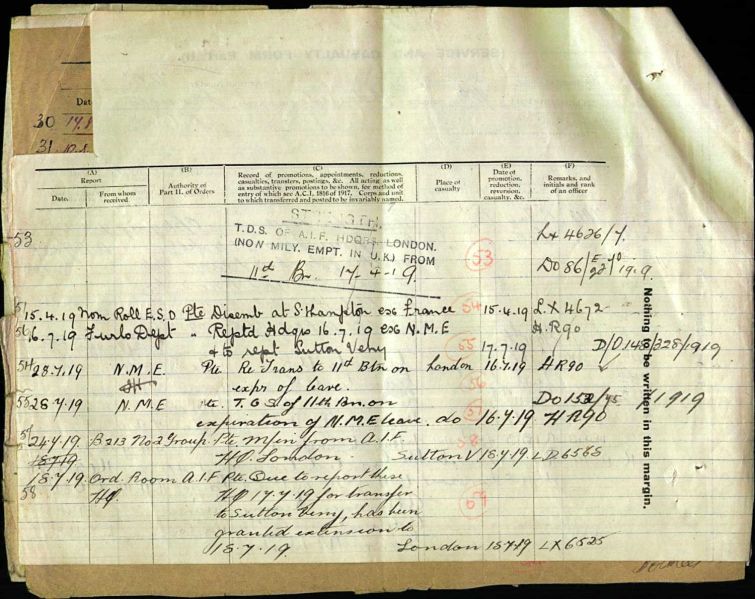 (SERVICE AND CASUALTY FORM
Dat
30 17.
31
(A) Report (B) (C) (D) (E) (F)
Date. From whom received. Authority of Part II. of Orders Record of promotions, appointments, reductions, Place of casualty Date of promotion, reduction, reversion, casualty, &c. Remarks, and initials and rank of an officer
casualties, transfers, postings, &c. All acting as well
as substantive promotions to be shown, for method of
entry of which see A.C.I. 1816 of 1917. Corps and unit
to which transferred and posted to be invariably named.
53 STRENGTH. Lx 4626/7.
T.D.S. OF A.I.F. HDQRS LONDON.
(NOW MILY. EMPT. IN U.K.) FROM 53
11d Bn. 17-4-19. DO 86/ 19.9.
15.4.19 Nom Roll E.S.O Pte Disemb at S.Hampton exg France 54 15.4.19 LX 4672
16.7.19 Furlo Dept " Reptd Hdqrs 16.7.19 exg N.M.E H.R90
& to rept Sutton Veny 55 17.7.19 D/O 148/328/1919
54 28.7.19 N.M.E. Pte. Re Trans to 11d Btn on London 16.7.19 HR90
expr of leave. 56
55 28.7.19 N.M.E Pte. T.O.S of 11th Bn. on DO 152/ /1919
expiration of N.M.E leave. do 16.7.19 HR90
24.7.19. B213 No 2 Group Pte M/in from A.I.F. 58
18.7.19 HQ. London. Sutton V 18.7.19 LD6568
18.7.19 Ord. Room A.I.F Pte. Due to report these
58 HQ. HQ 17.7.19 for transfer 59
to Sutton Veny, has been
granted extension to
18.7.19. London 18.7.19 LX6525
Nothing to be written in this margin.